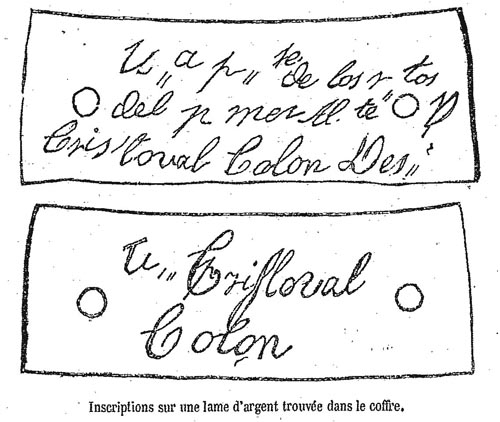 U,, a p,, te. de los r tos
del p mer Al. te" D
Cris'toval Colon Des,,
U,, Cristoval
Colon
Inscriptions sur une lame d'argent trouvée dans le coffre.